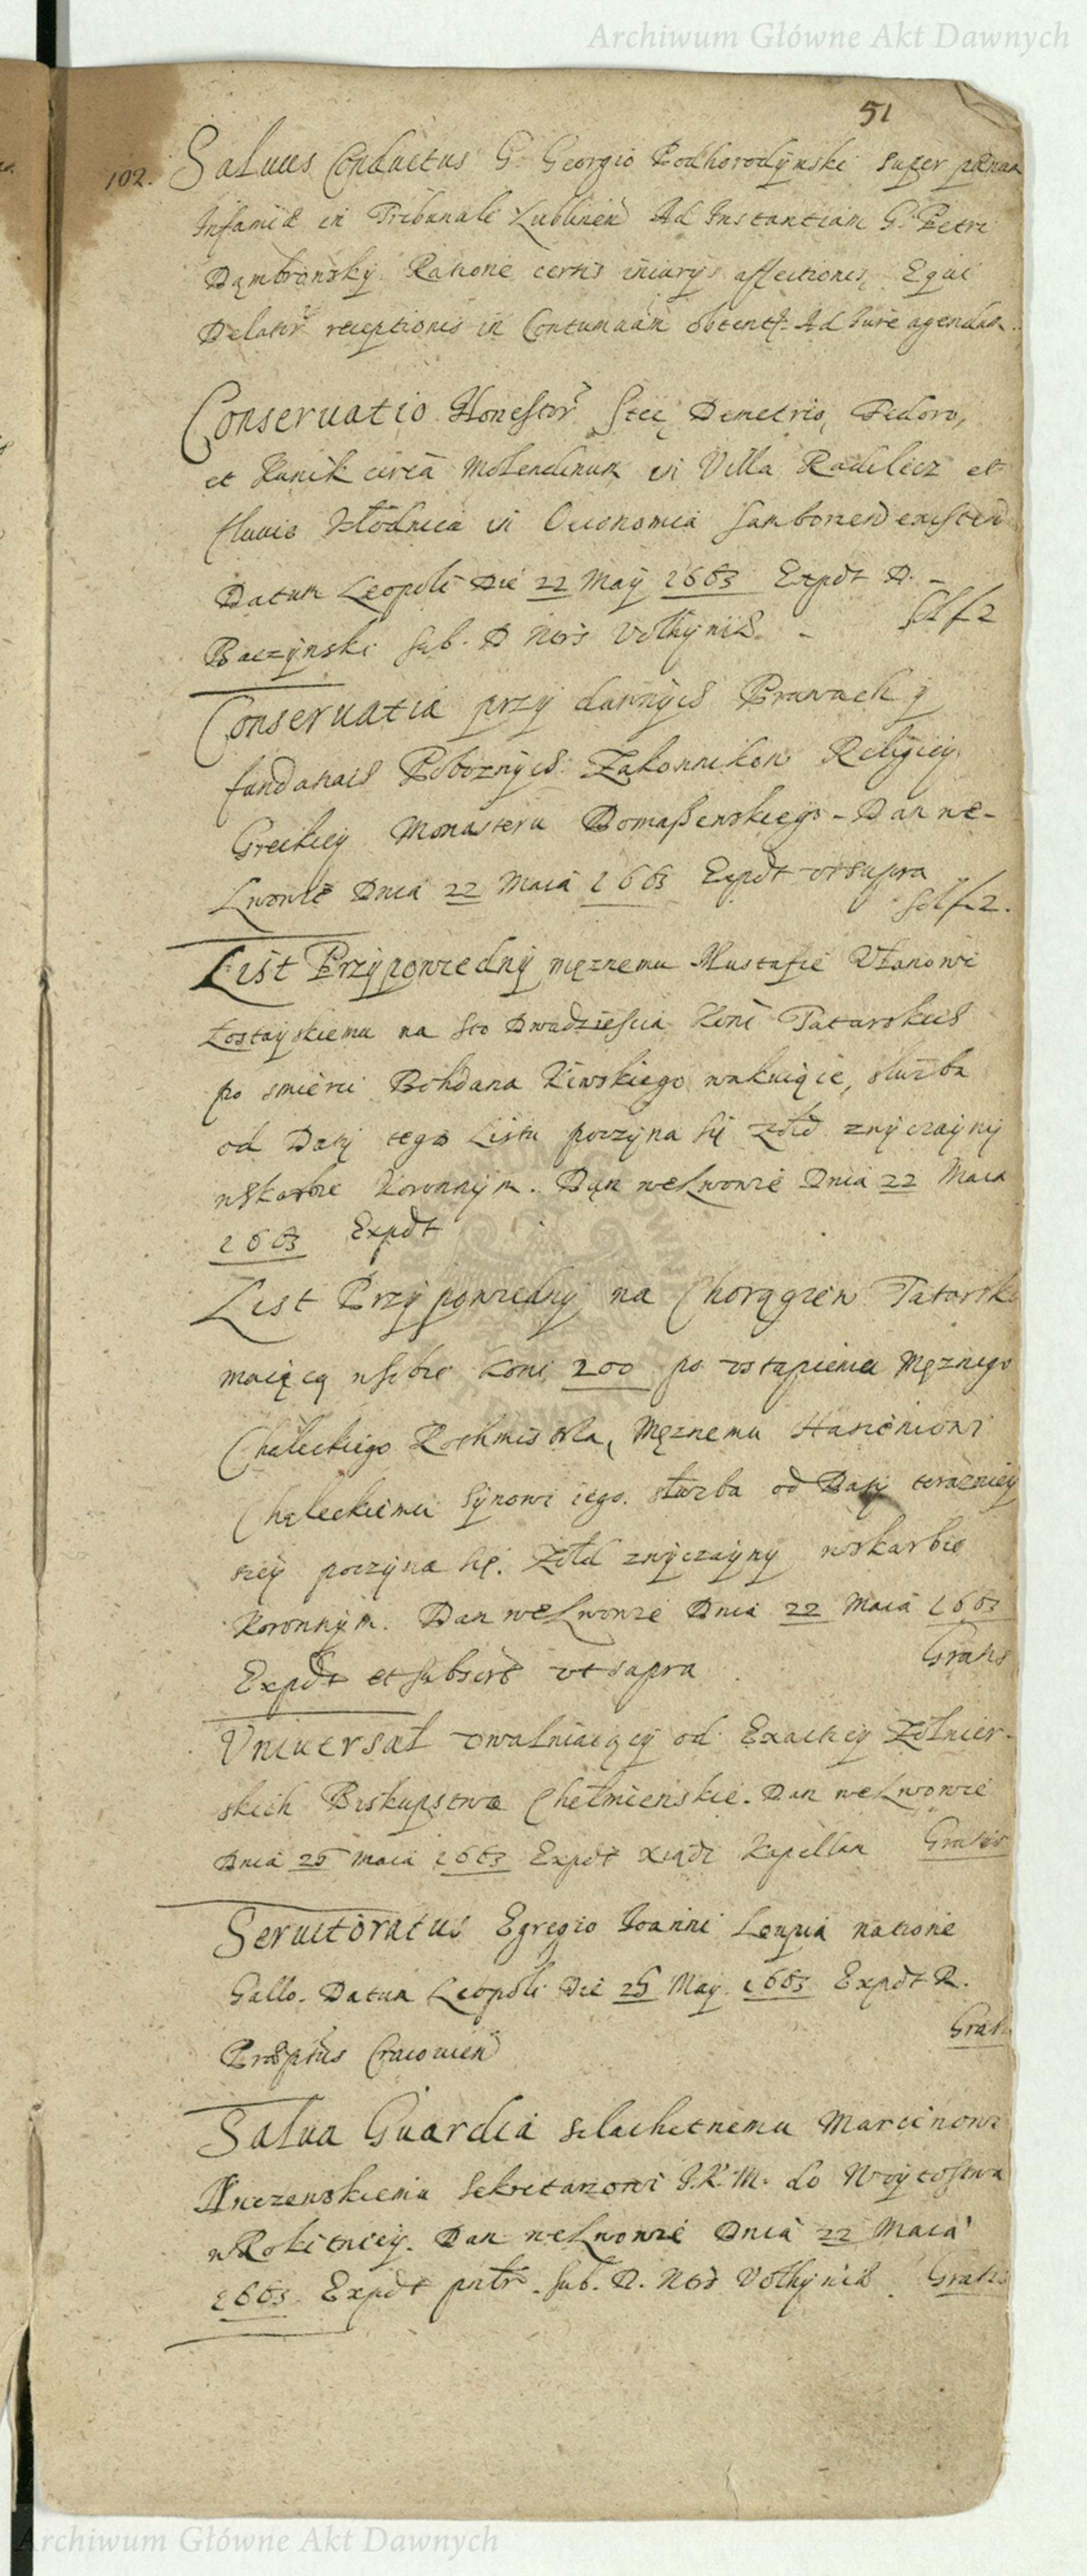 Archiwum Główne Akt Dawnych
51
102. Saluus Conductus G. Georgio Podhorodÿnski super pœnam
Infamiæ in Tribunali Lublinen Ad Instantiam G. Petri
Dąmbronskÿ Ratione certis iniurÿs affectionis, Equi
Delator receptionis in Contumaciam obtent. Ad Iure agendum
Conseruatio Honestor Stec, Demetrio, Fedoro,
et Panik circa Molendinum in Villa Radilicz et
fluuio Kłodnica in Oeconomia Samborien existen
Datum Leopoli Die 22 Maÿ 1663 Expdt D. –
Baczÿnski sub. D Nois Volhÿniæ – Sol f 2
Conseruatia przÿ dawnÿch Prawach ÿ
fundatiach Poboznÿch Zakonnikow Religieÿ
Greckieÿ Monasteru Domaszewskiego – Dan we
Lwowie Dnia 22 Maia 1663 Expdt vt supra
Sol f 2.
List Przÿpowiednÿ męznemu Mustafie Vłanowi
Łostaÿskiemu na sto Dwadziescia koni Tatarskich
po smierci Bohdana Kiwskiego wakuiące, służba
od Datÿ tego Listu poczÿna się zołd zwÿczaÿnÿ
wskarbie Koronnÿm. Dan we Lwowie Dnia 22 Maia
1663 Expdt
List Przÿpowiednÿ na Chorągiew Tatarską
maiącą w sobie koni 200 po vstąpieniu Męznego
Chaleckiego Rothmistrza, Męznemu Hasieniowi
Chaleckiemu Sÿnowi iego. służba od Datÿ terazniey
szeÿ poczÿna się. Zołd zwÿczaÿnÿ wskarbie
Koronnÿm. Dan we Lwowie Dnia 22 Maia 1663
Gratis
Expdt et subscr vt supra
Vniuersał vwalniaiącÿ od Exactiÿ Zołnier-
skich Biskupstwo Chełmienskie. Dan we Lwowie
Dnia 25 Maia 1663 Expdt xiądz Kapellan Gratis
Seruitoratus Egregio Ioanni Loupia natione
Gallo. Datum Leopoli Die 25 Maÿ 1663 Expdt R.
Gratis
Præptus Cracouien
Salua Guardia szlachetnemu Marcinowi
Kuczewskiemu Sekretarzowi J.K.M. do Woÿtostwa
w Rokitnieÿ. Dan we Lwowie Dnia 22 Maia
1663 Expdt pntr. sub. R. Nois Volhÿniæ Gratis
Archiwum Główne Akt Dawnych